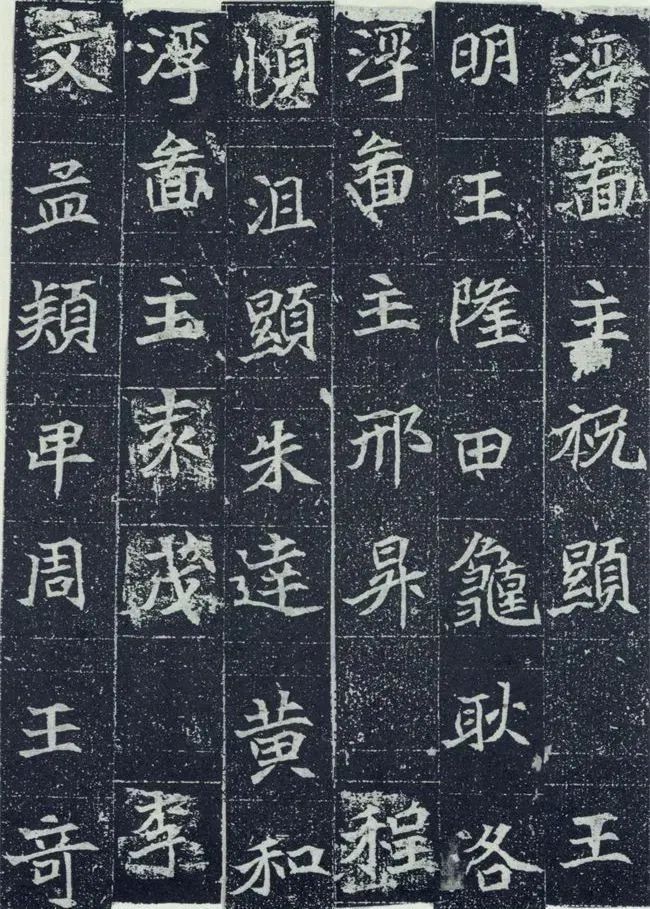 浮啚主祝顯 王
明王隆甲龜耿各
浮啚主邢昇 程
慎沮顯朱達黄和
浮啚主袁茂 李
文類周王奇